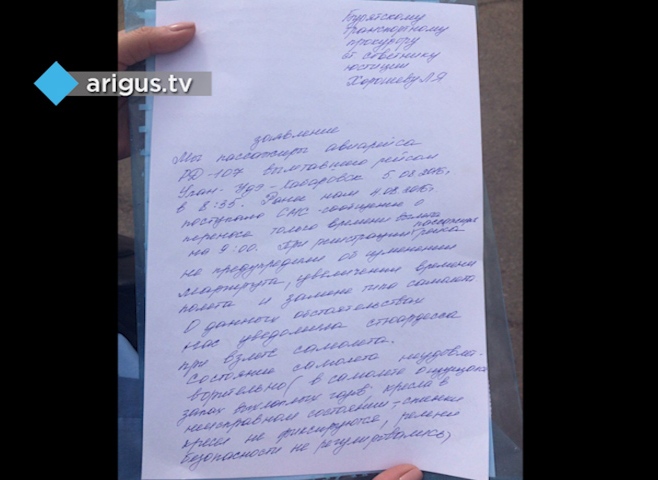 arigus.tv
Бурятскому
транспортному
прокурору
ст. советнику
юстиции
Хорошеву Л Я
заявление
Мы пассажиры авиарейса
РД-107 вылетавшего рейсом
Улан-Удэ-Хабаровск 5.08.2015г
в 8:35. Ранее нам 4.08.2015г
поступало СМС-сообщение о
переносе только времени вылета
на 9:00. При регистрации пассажиров
не предупредили об изменении
маршрута, увеличении времени
полета и замене типа самолета.
О данных обстоятельствах
нас уведомила стюардесса
при взлете самолета.
Состояние самолета неудовле-
ворительно (в самолете ощущался
запах выхлопных газов, кресла в
неисправном состоянии - спинки
кресел не фиксируются, ремни
безопасности не регулировались,